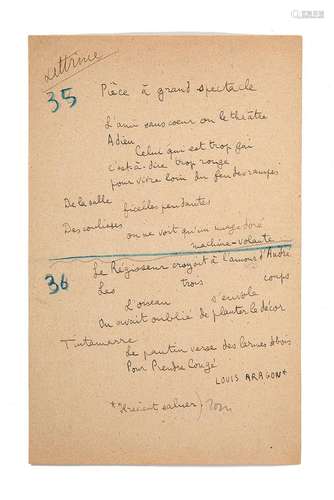 Lettrine
35 Pièce à grand spectacle
L'ami sans coeur ou le théâtre
Adieu
Celui qui est trop gai
c'est-à-dire trop rouge
pour vivre loin du feu des rampes
De la salle
ficelles pendantes
Des coulisses
on ne voit qu'un nuage doré
machine-volante
36 Le Régisseur croyait à l'amour d'André
Les trois coups
L'oiseau s'envole
On avait oublié de planter le décor
Tintamarre
Le pantin verse des larmes de bois
Pour Prendre Congé
LOUIS ARAGON*
*(Ils viennent saluer)